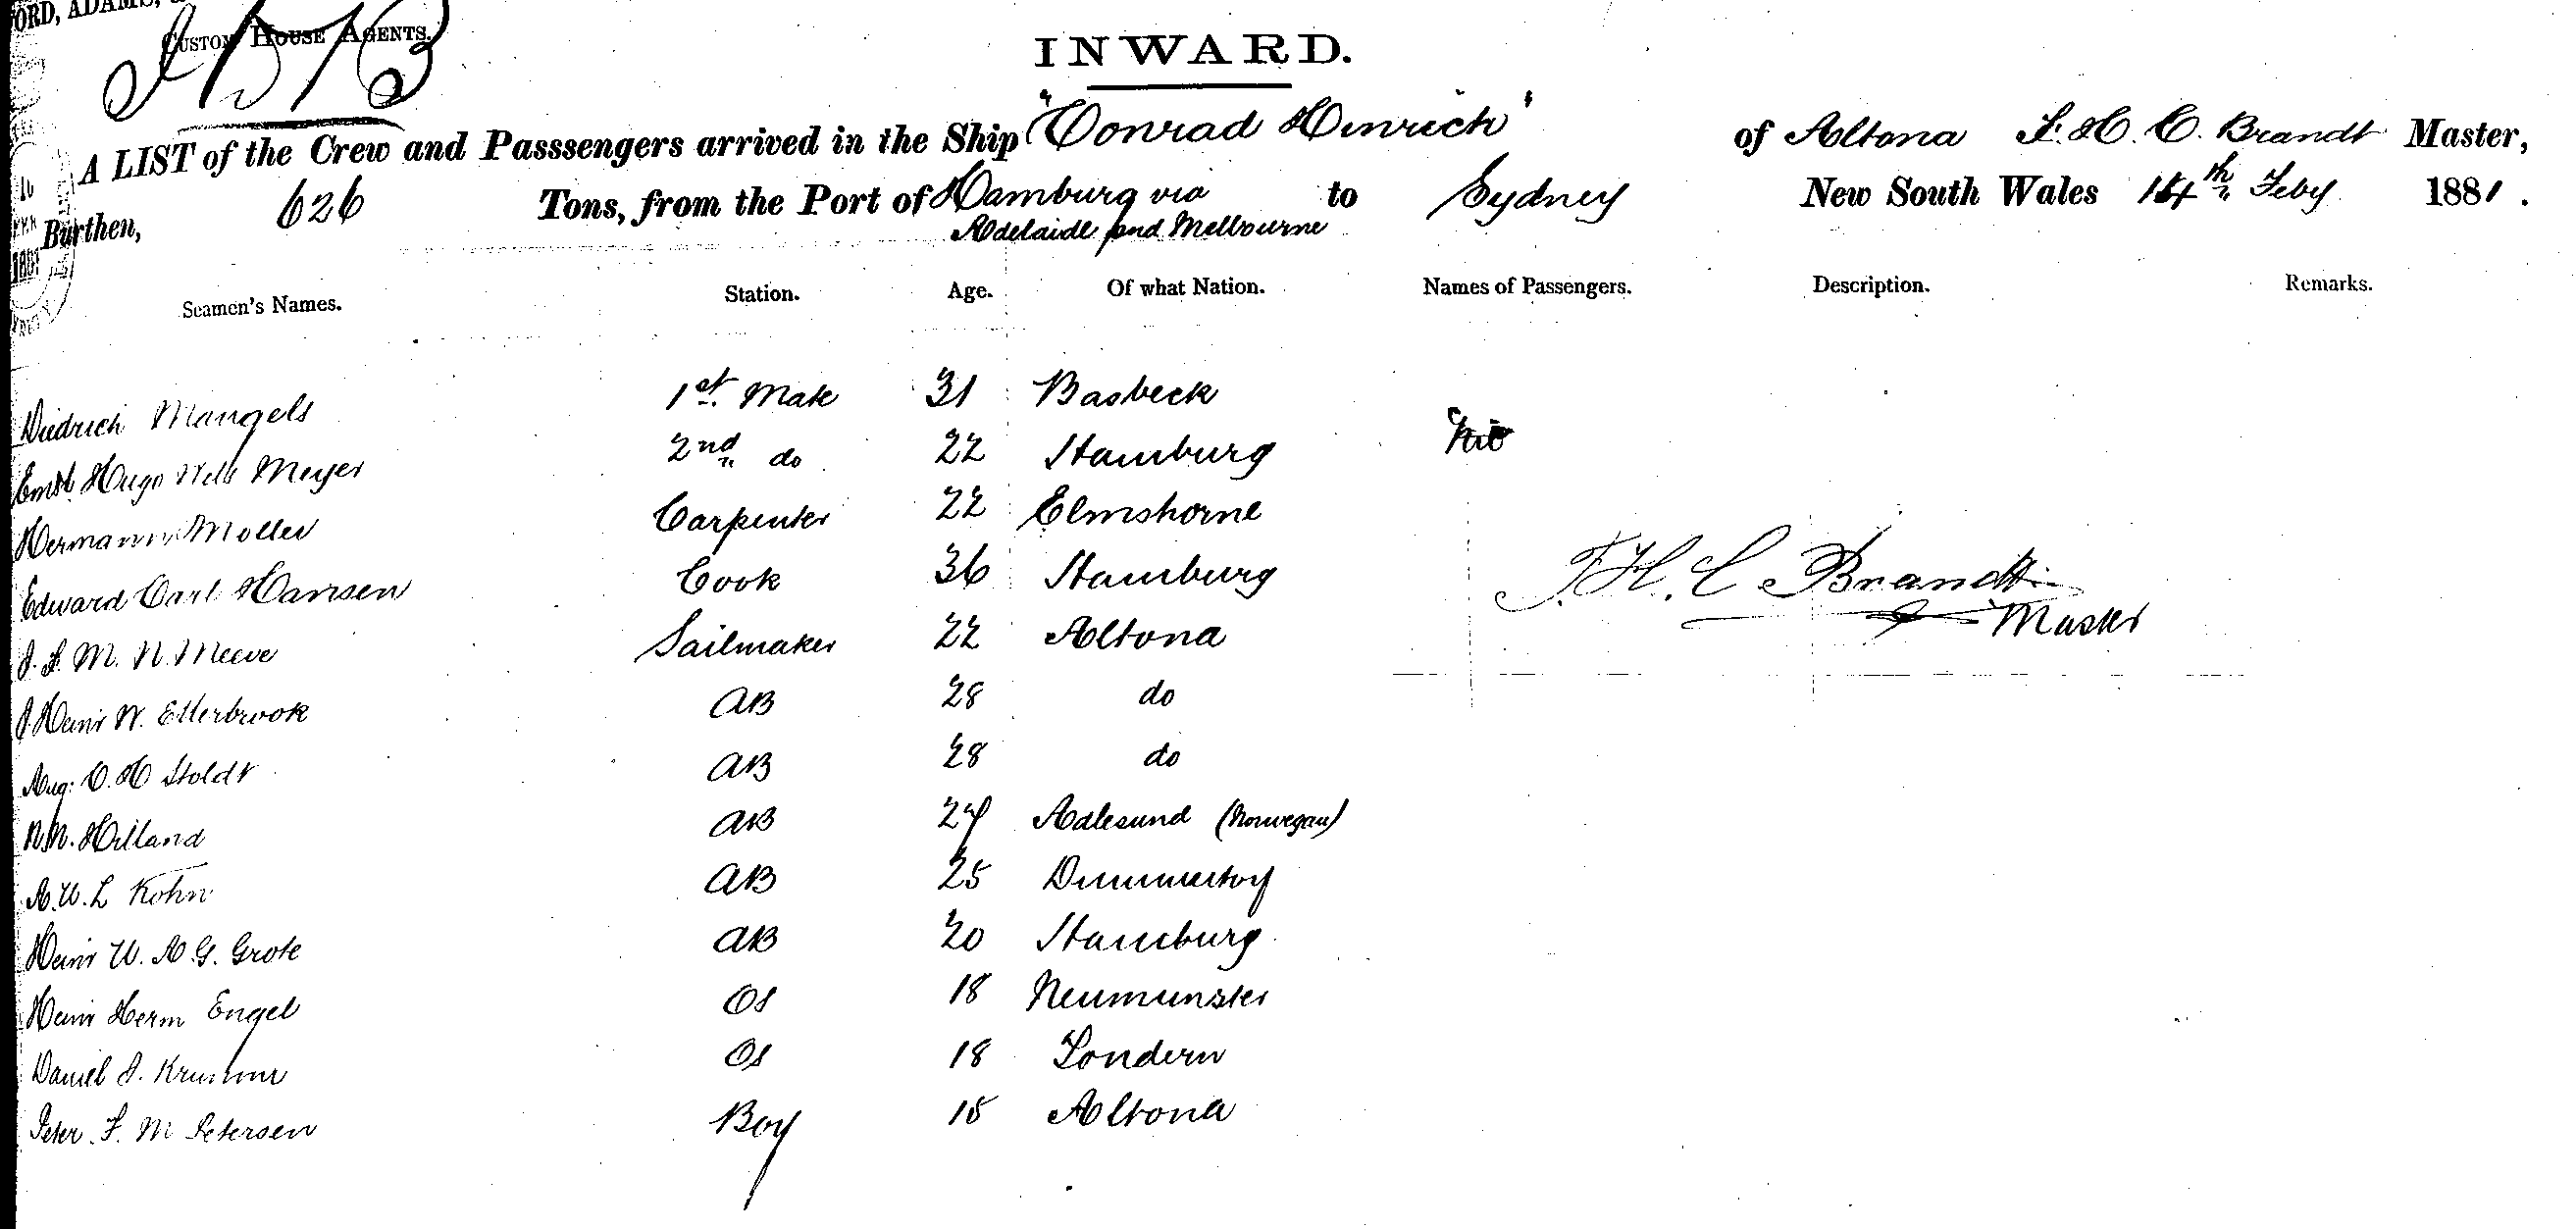 ORD, ADAMS,
CUSTOM HOUSE AGENTS.
INWARD.
A LIST of the Crew and Passsengers arrived in the Ship "Conrad Hinrich" of Altona F. H. C. Brandt Master,
Burthen, 626 Tons, from the Port of Hamburg via to Sydney New South Wales 14th Feby 1881.
Adelaide and Melbourne
Seamen's Names. Station. Age. Of what Nation. Names of Passengers. Description. Remarks.
Diedrich Mangels 1st. Mate 31 Basbeck
Ernst Hugo Meyer 2nd do 22 Hamburg
Hermann Moller Carpenter 22 Elmshorne
Edward Carl Hansen Cook 36 Hamburg
J. F. M. N. Meeve Sailmaker 22 Altona
J. Heinr W. Ellerbrook AB 28 do
Aug: C. H Stoldt AB 28 do
N. N. Hilland AB 24 Adlesund (Norwegan)
A. W. L Kohn AB 25
Heinr W. A. G. Grote AB 20 Hamburg
Heinr Herm Engel OS 18 Neumunster
Daniel J. Krumm OS 18 Tondern
Peter. F. M Petersen Boy 15 Altona
F. H. C Brandt
Master